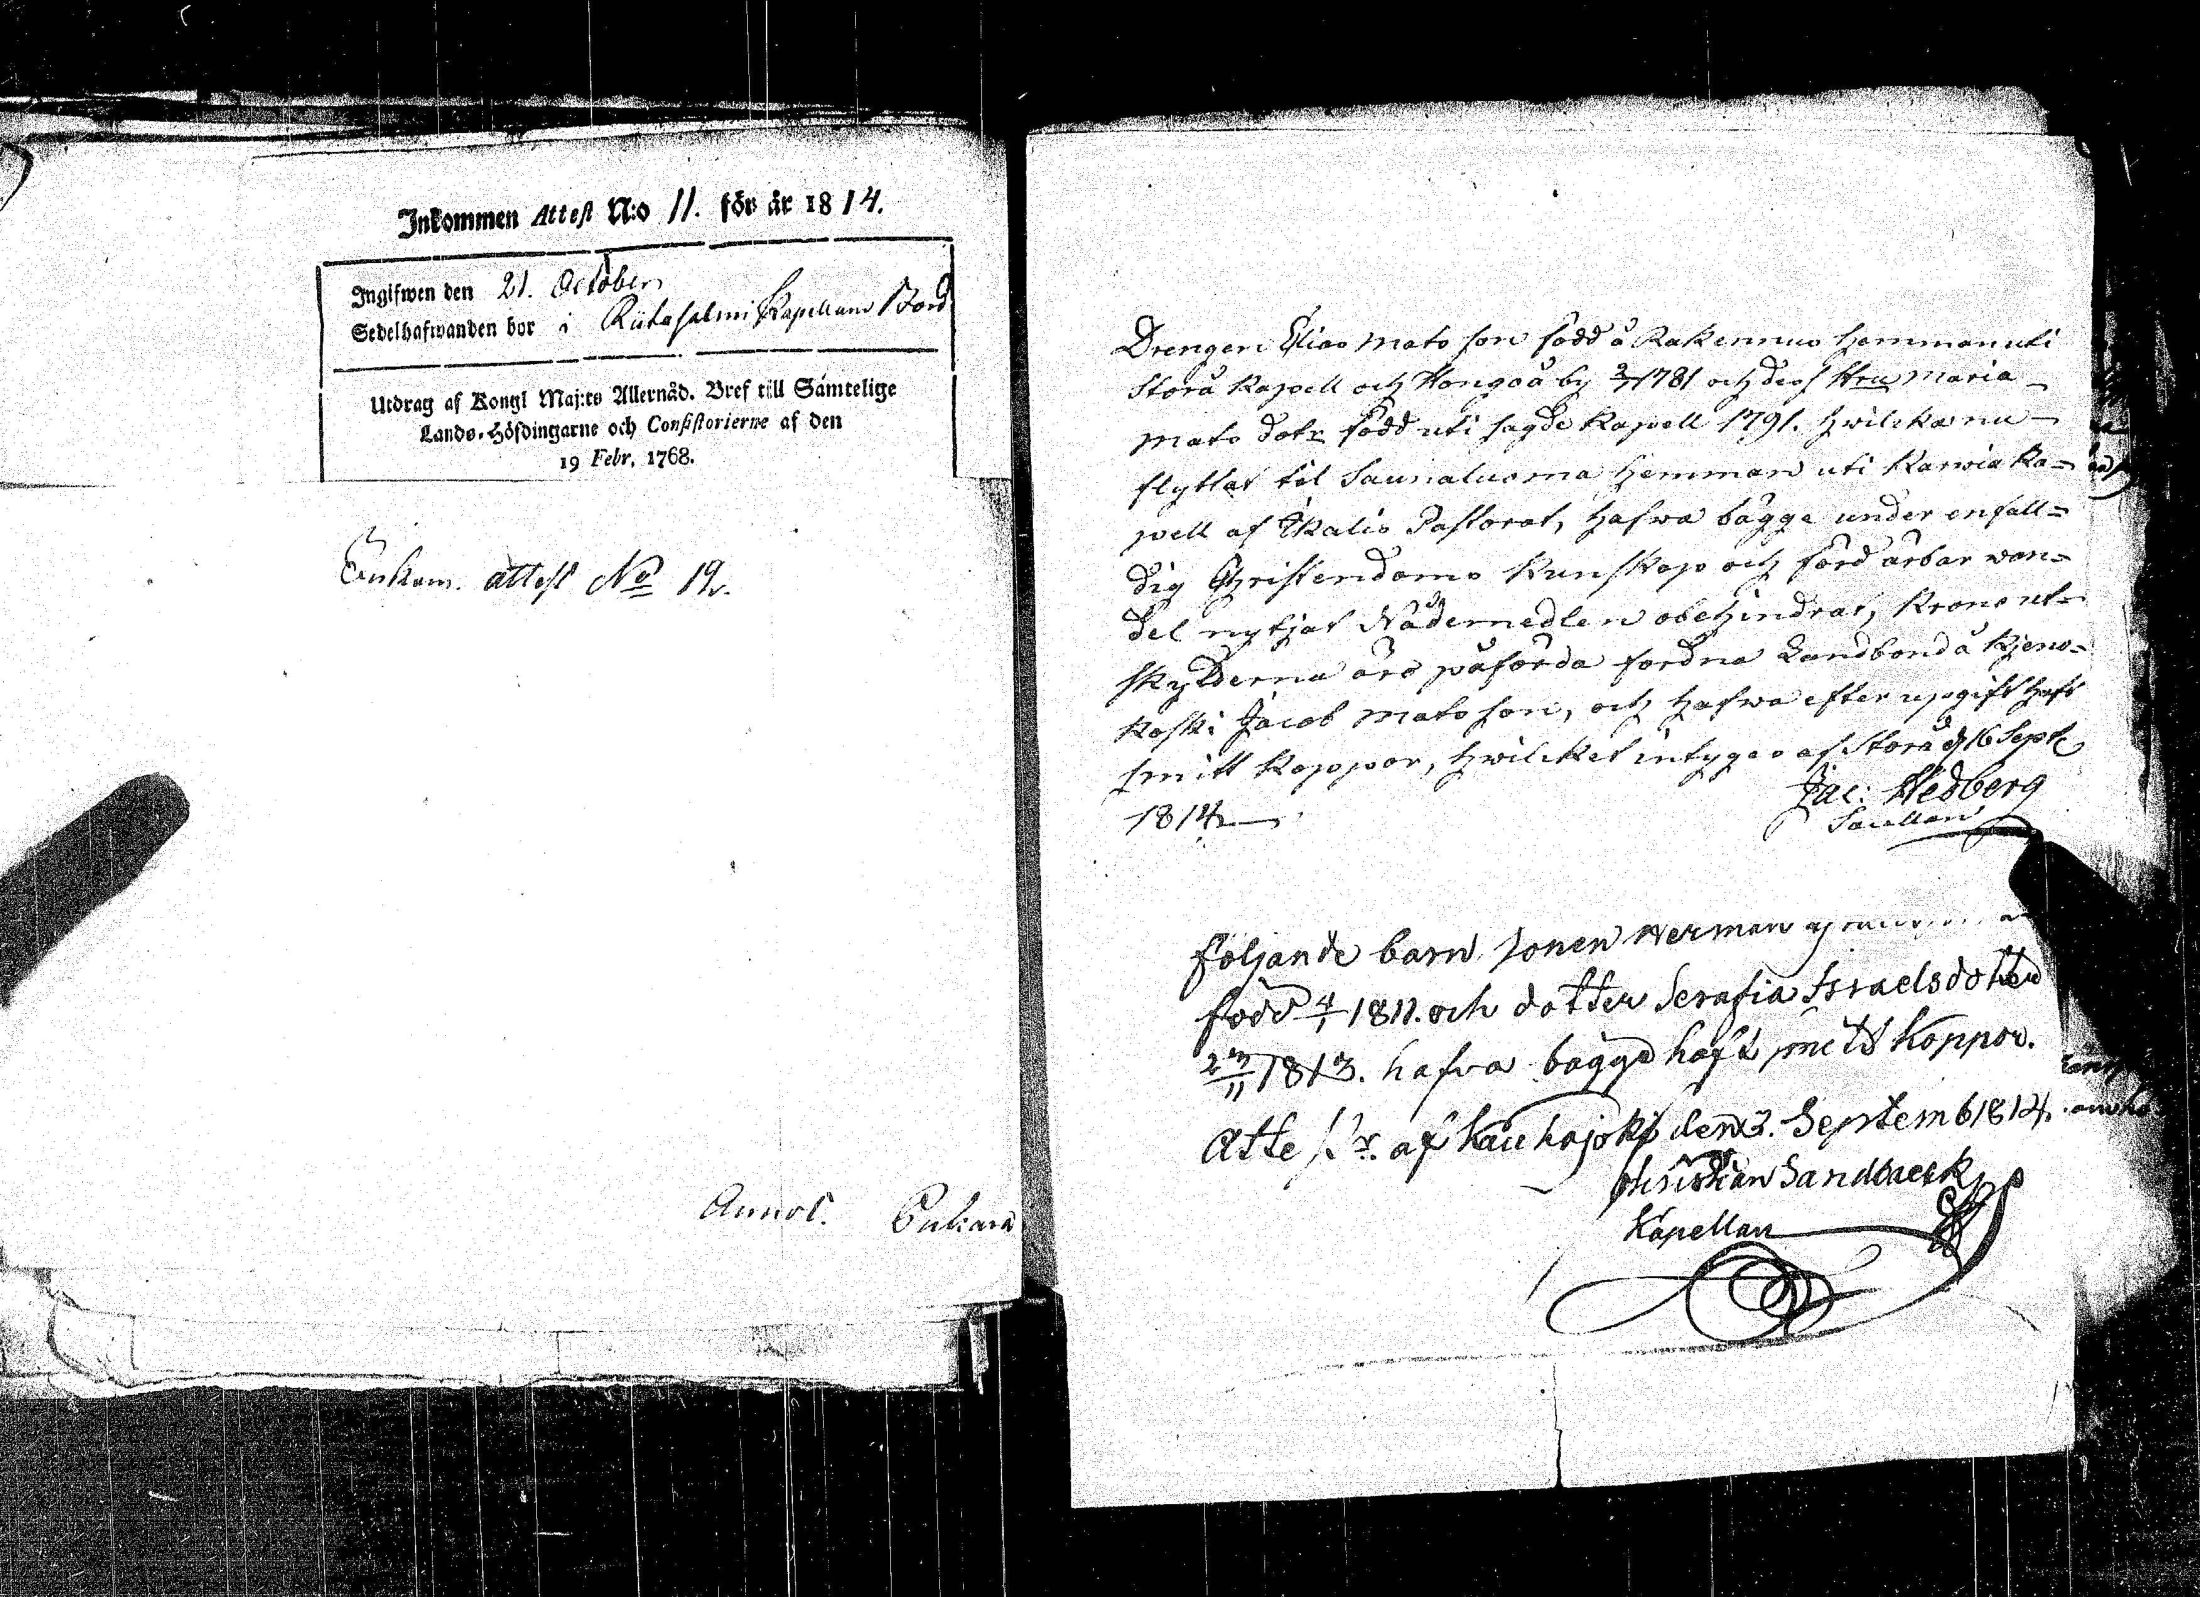 Inkommen Attest N:o 11. för år 1814.
Ingifwen den 21. October
Sedelhafwanden bor i Riitasalmi Kapellans Bord
Utdrag af Kongl Maj:ts Allernåd. Bref till Samtelige
Lands-Höfdingarne och Consistorierne af den
19 Febr. 1768.
Inkom. attest No 19.
Annot.
Drengen Elias Mats son född å Rakennus Hemman uti
Storå Kapell och Kongoå by 1781 och dess Hru Maria
Mats dotr född uti sagde Kapell 1791. hwilka nu
flyttat til Saunaluoma Hemman uti Karwia Ka=
pell af Ikalis Pastorat, hafwa bägge under enfall=
dig Christendoms Kunskap och förd ärbar wan=
del nytjat Nådemedlen obehindrat, Krono ut=
skylderna äro påförda fordna Landbond å Kjeno=
koski Jacob Mats son, och hafwa efter upgift haft
smitt Koppor, hwilcket intygas af Storå d 16 Sept
1814
Jac: Hedberg
Sacellan
följande barn, sonen Herman
född 4/1 1811. och dotter Serafia Israelsdotter
1813. hafva bägge haft Koppor.
Attest:r. af Kauhajoki den 3. Septemb 1814.
Christian Sandbaeck
Kapellan